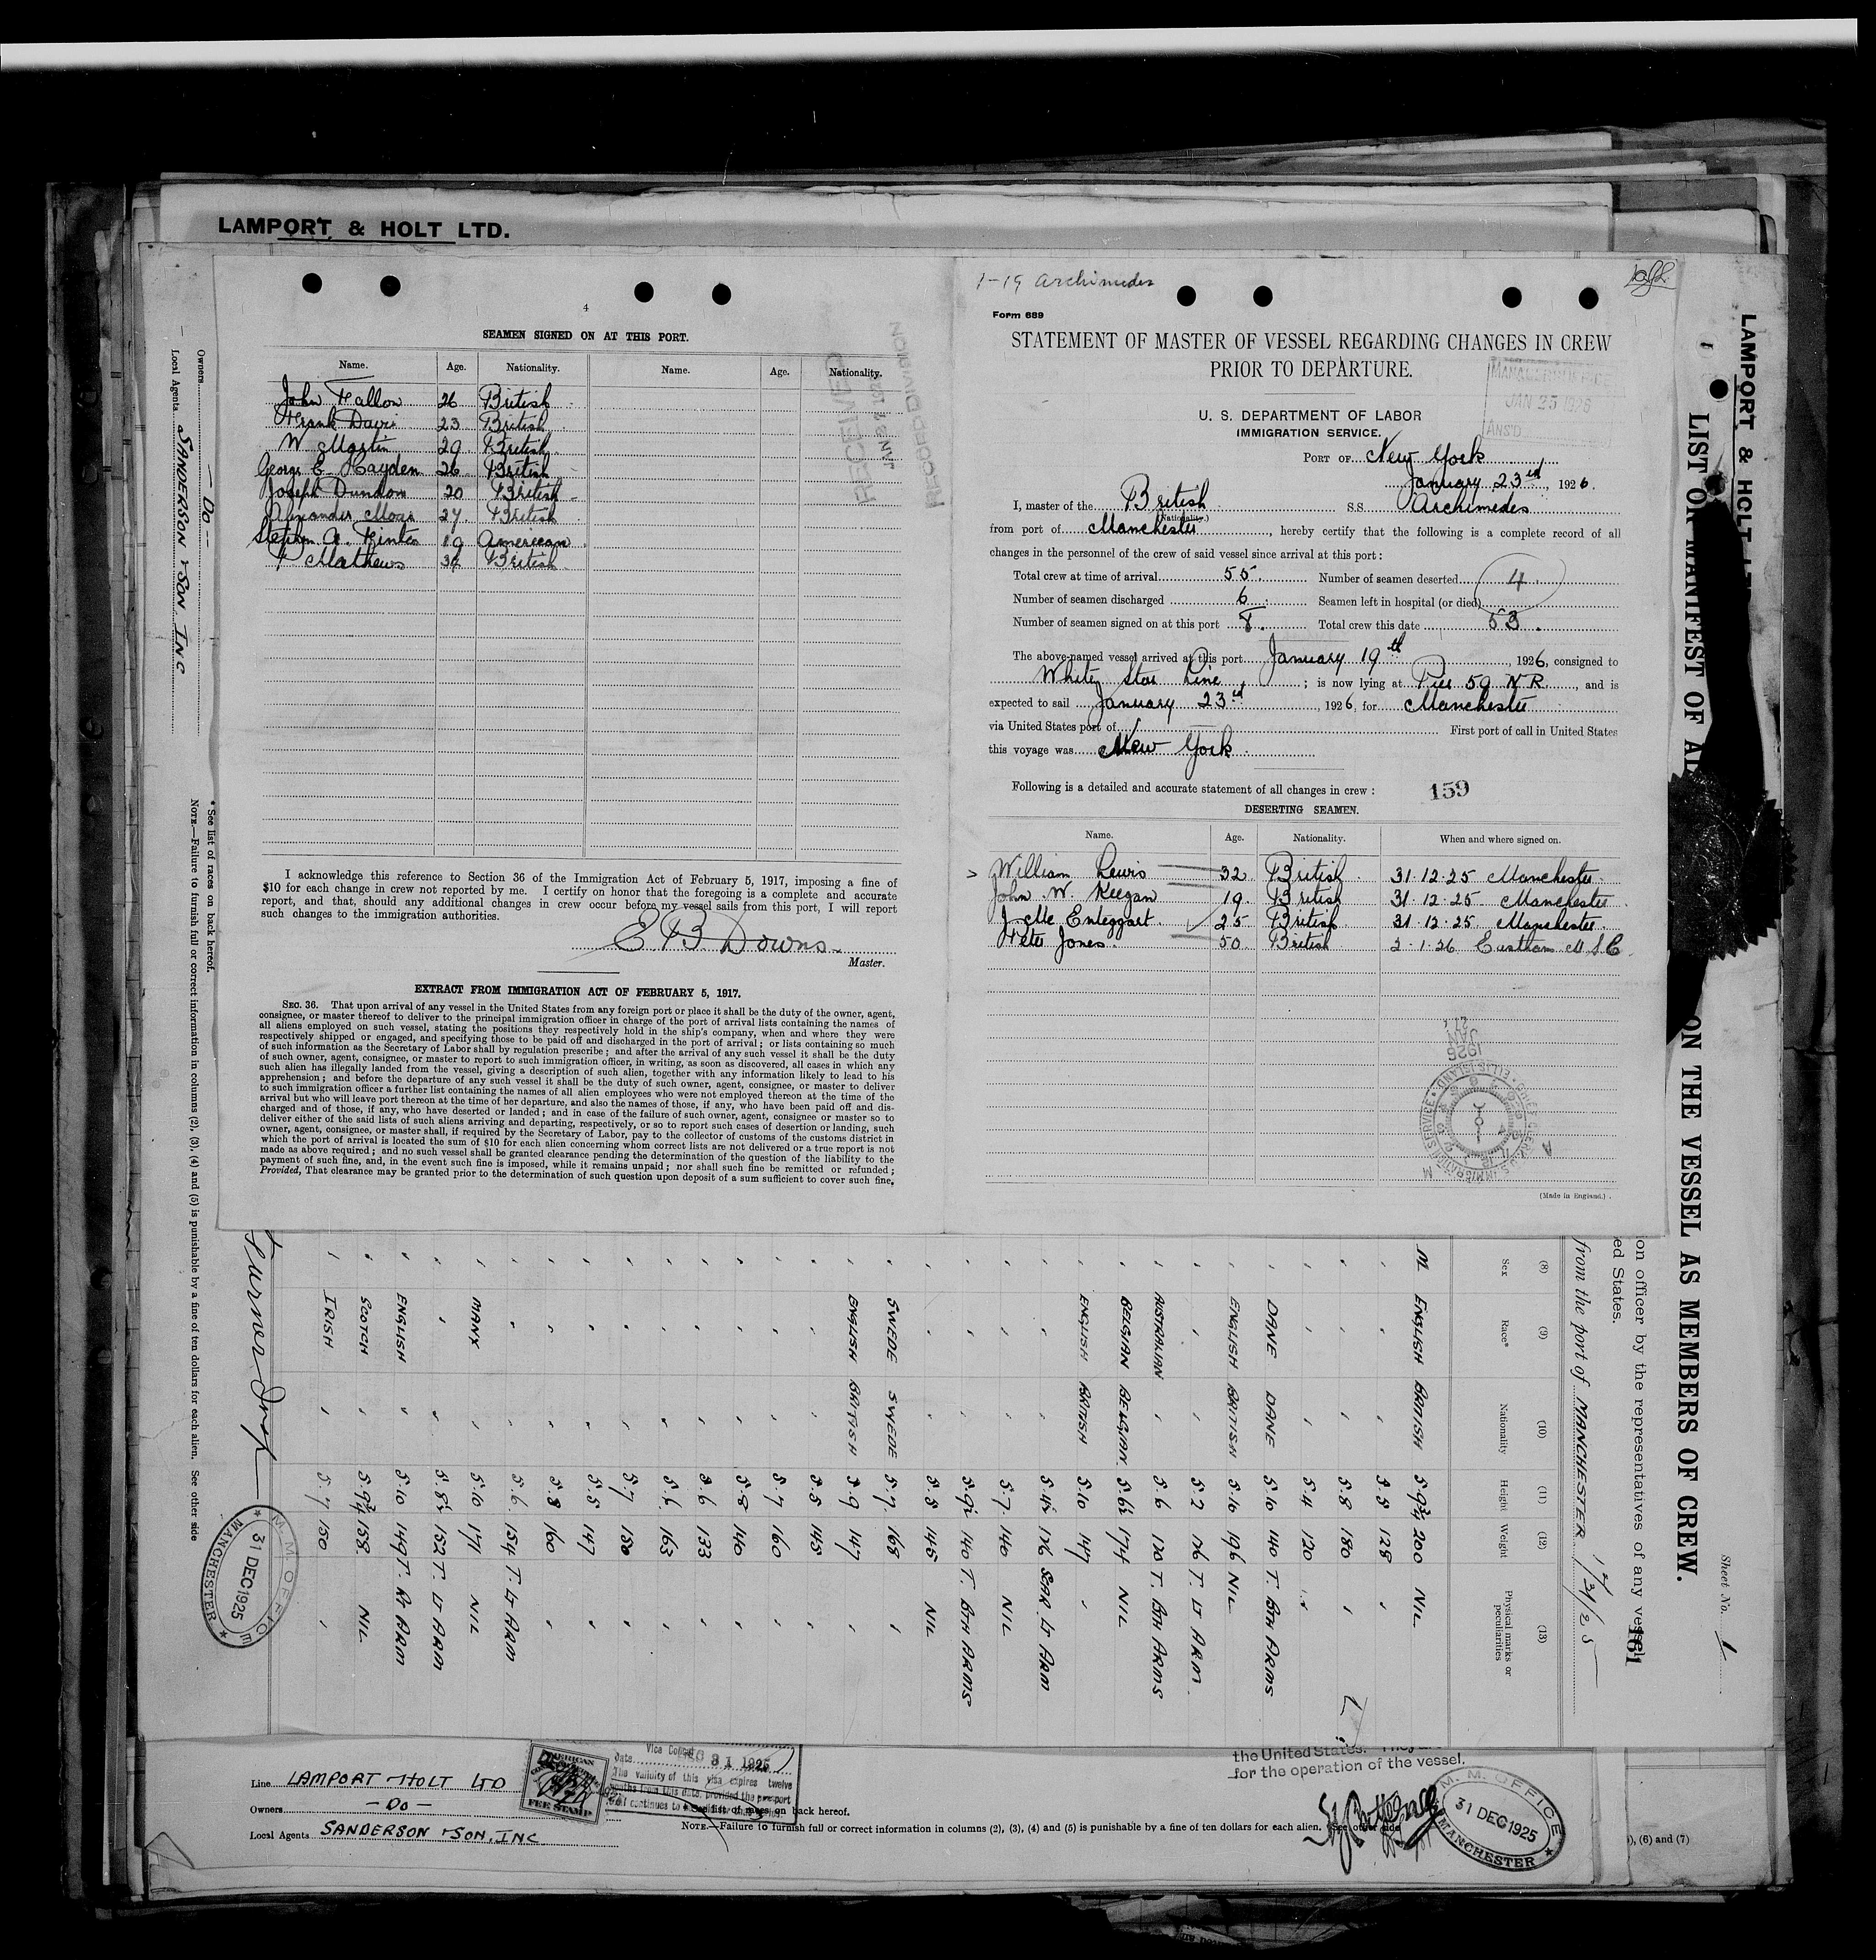 LAMPORT & HOLT LTD.
4
SEAMEN SIGNED ON AT THIS PORT.
Name. Age. Nationality. Name. Age. Nationality.
John Fallon 26 British
Frank Davis 23 British
W Martin 29 British
George E. Hayden 26 British
Joseph Dundon 20 British
Alexander Moar 27 British
Stephen A. 19 American
Mathews 34 British
I acknowledge this reference to Section 36 of the Immigration Act of February 5, 1917, imposing a fine of
$10 for each change in crew not reported by me. I certify on honor that the foregoing is a complete and accurate
report, and that, should any additional changes in crew occur before my vessel sails from this port, I will report
such changes to the immigration authorities.
E B Downs
Master.
EXTRACT FROM IMMIGRATION ACT OF FEBRUARY 5, 1917.
SEC. 36. That upon arrival of any vessel in the United States from any foreign port or place it shall be the duty of the owner, agent,
consignee, or master thereof to deliver to the principal immigration officer in charge of the port of arrival lists containing the names of
all aliens employed on such vessel, stating the positions they respectively hold in the ship's company, when and where they were
respectively shipped or engaged, and specifying those to be paid off and discharged in the port of arrival; or lists containing so much
of such information as the Secretary of Labor shall by regulation prescribe; and after the arrival of any such vessel it shall be the duty
of such owner, agent, consignee, or master to report to such immigration officer, in writing, as soon as discovered, all cases in which any
such alien has illegally landed from the vessel, giving a description of such alien, together with any information likely to lead to his
apprehension; and before the departure of any such vessel it shall be the duty of such owner, agent, consignee, or master to deliver
to such immigration officer a further list containing the names of all alien employees who were not employed thereon at the time of the
arrival but who will leave port thereon at the time of her departure, and also the names of those, if any, who have been paid off and dis-
charged and of those, if any, who have deserted or landed; and in case of the failure of such owner, agent, consignee or master so to
deliver either of the said lists of such aliens arriving and departing, respectively, or so to report such cases of desertion or landing, such
owner, agent, consignee, or master shall, if required by the Secretary of Labor, pay to the collector of customs of the customs district in
which the port of arrival is located the sum of $10 for each alien concerning whom correct lists are not delivered or a true report is not
made as above required; and no such vessel shall be granted clearance pending the determination of the question of the liability to the
payment of such fine, and, in the event such fine is imposed, while it remains unpaid; nor shall such fine be remitted or refunded;
Provided, That clearance may be granted prior to the determination of such question upon deposit of a sum sufficient to cover such fine.
RECEIVED
RECORD DIVISION
1-19 Archimedes
Form 689
STATEMENT OF MASTER OF VESSEL REGARDING CHANGES IN CREW
PRIOR TO DEPARTURE.
JAN 25 1926
ANS'D
U. S. DEPARTMENT OF LABOR
IMMIGRATION SERVICE.
PORT OF New York
January 23rd, 1926.
I, master of the British S.S. Archimedes
(Nationality.)
from port of Manchester, hereby certify that the following is a complete record of all
changes in the personnel of the crew of said vessel since arrival at this port:
Total crew at time of arrival 55. Number of seamen deserted 4.
Number of seamen discharged 6. Seamen left in hospital (or died)
Number of seamen signed on at this port 8. Total crew this date 53.
The above-named vessel arrived at this port January 19th, 1926, consigned to
White Star Line; is now lying at Pier 59 N.R., and is
expected to sail January 23rd, 1926, for Manchester
via United States port of First port of call in United States
this voyage was New York.
Following is a detailed and accurate statement of all changes in crew: 159
DESERTING SEAMEN.
Name. Age. Nationality. When and where signed on.
William Lewis 32 British 31.12.25 Manchester.
John W. Keegan 19. British 31.12.25 Manchester.
J. Mc Enteggart. 25 British 31.12.25 Manchester.
Peter Jones. 50. British 2.1.26 Eastham M S C
27
JAN
1926
(Made in England.)
LAMPORT & HOLT
Sheet No. 1
LIST OR MANIFEST OF AL
ON THE VESSEL AS MEMBERS OF CREW.
ion officer by the representatives of any vessel
161
ed States.
from the port of MANCHESTER 12/31/25
(8) (9) (10) (11) (12) (13)
Sex Race* Nationality Height Weight Physical marks or peculiarities
M ENGLISH BRITISH 5.9¾ 200 NIL
" " " 5.8 128 "
" " " 5.8 180 "
" " " 5.4 120 "
" DANE DANE 5.10 140 T. BTH ARMS
" ENGLISH BRITISH 5.10 196 NIL
" " " 5.2 176 T. LT ARM.
" AUSTRALIAN " 5.6 170 T. BTH ARMS
" BELGIAN BELGIAN 5.6½ 174 NIL
" ENGLISH BRITISH 5.10 147 "
" " " 5.4½ 176 SCAR LT ARM
" " " 5.7 140 NIL
" " " 5.9½ 140 T. BTH ARMS
" " " 5.8 145 NIL
" SWEDE SWEDE 5.7 168 "
" ENGLISH BRITISH 5.9 147 "
" " " 5.5 145 "
" " " 5.7 160 "
" " " 5.8 140 "
" " " 5.6 133 "
" " " 5.6 163 "
" " " 5.7 130 "
" " " 5.5 147 "
" " " 5.8 160 "
" " " 5.6 154 T. LT ARM
" MANX " 5.10 171 NIL
" " " 5.8½ 152 T. LT ARM
" ENGLISH " 5.10 149 T. RT ARM
" SCOTCH " 5.9¾ 158 NIL
" IRISH " 5.7 150 "
M. M. OFFICE
31 DEC 1925
MANCHESTER
Owners — Do —
Local Agents SANDERSON & SON INC
* See list of races on back hereof.
NOTE.—Failure to furnish full or correct information in columns (2), (3), (4) and (5) is punishable by a fine of ten dollars for each alien. See other side
Line LAMPORT & HOLT LTD
Owners — Do —
Local Agents SANDERSON & SON, INC
AMERICAN
FEE STAMP
Vice Consul
Date DEC 31 1925
The validity of this visa expires twelve
months from this date, provided the passport
continues to
* See list of races on back hereof.
NOTE.—Failure to furnish full or correct information in columns (2), (3), (4) and (5) is punishable by a fine of ten dollars for each alien. See other side
the United States.
for the operation of the vessel.
M. M. OFFICE
31 DEC 1925
MANCHESTER
), (6) and (7)